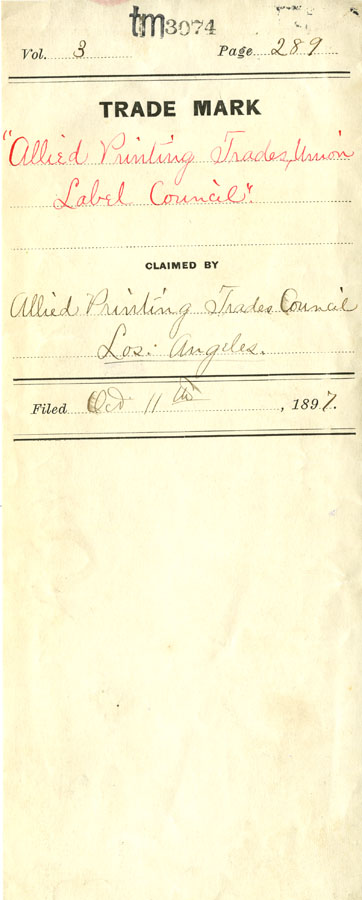 tm3074
Vol. 3 Page 289
TRADE MARK
"Allied Printing Trades, Union
Label Council".
CLAIMED BY
Allied Printing Trades Council
Los: Angeles.
Filed Oct 11th, 1897.